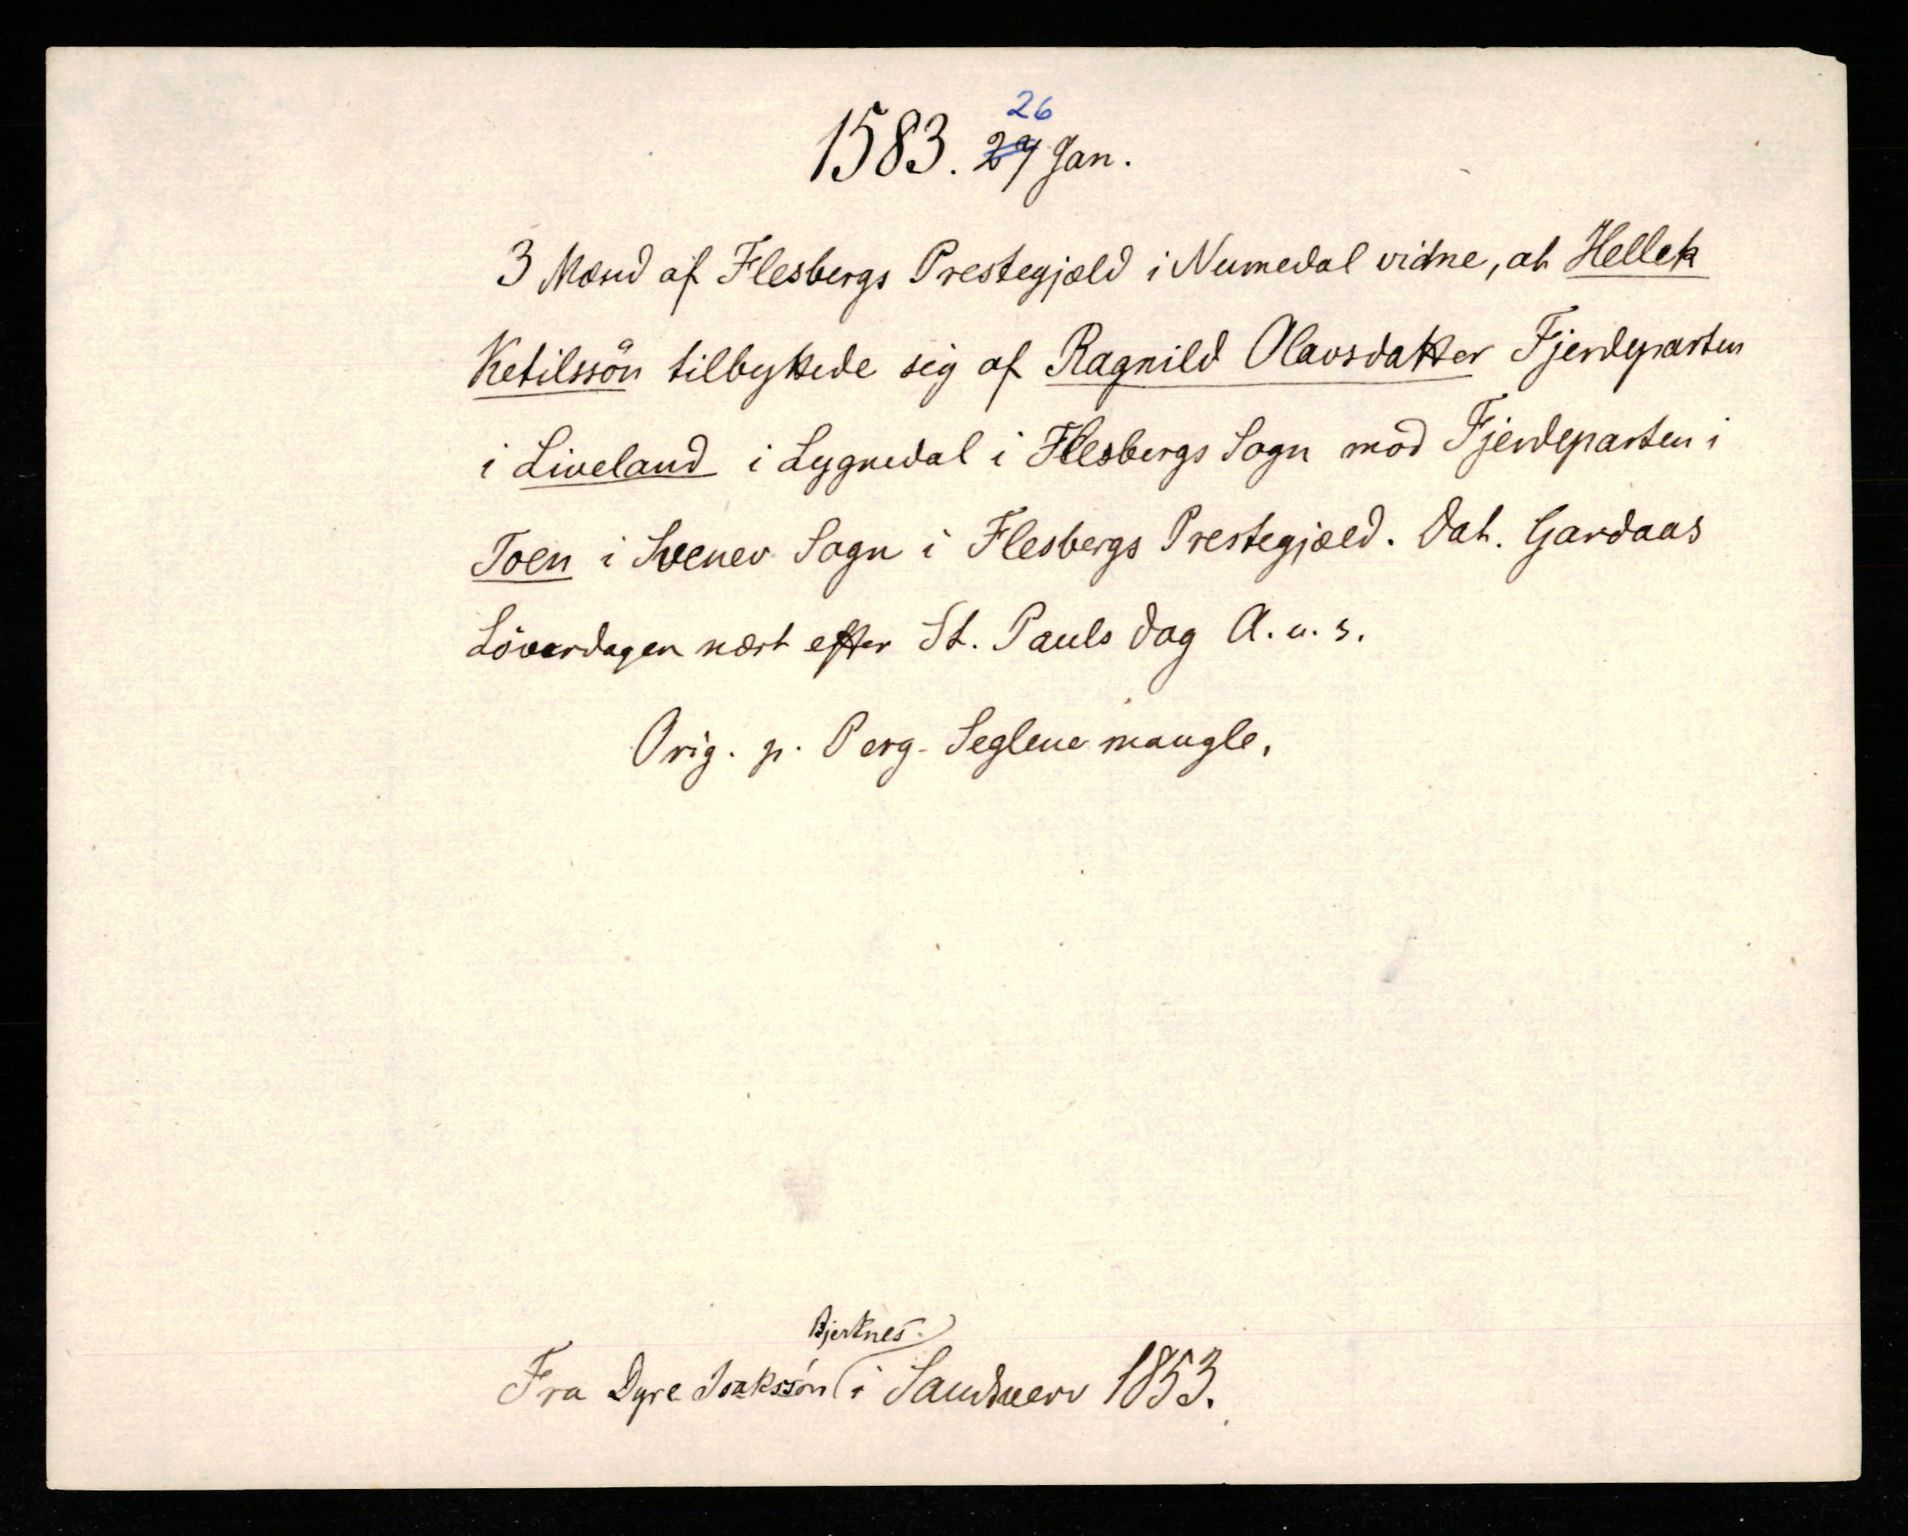 26
1583. 29 Jan.
3 Mænd af Flesbergs Prestegjæld i Numedal vidne, at Hellek
Ketilssön tilbyttede sig af Ragnild Olavsdatter Fjerdeparten
i Liveland i Lygnedal i Flesbergs Sogn mod Fjerdeparten i
Toen i Svenev Sogn i Flesbergs Prestegjæld. Dat. Gardaas
Löverdagen næst efter St. Pauls dag A. u. s.
Orig. p. Perg. Seglene mangle.
Bjerknes.
Fra Dyre Isakssön i Sandsverv 1853.